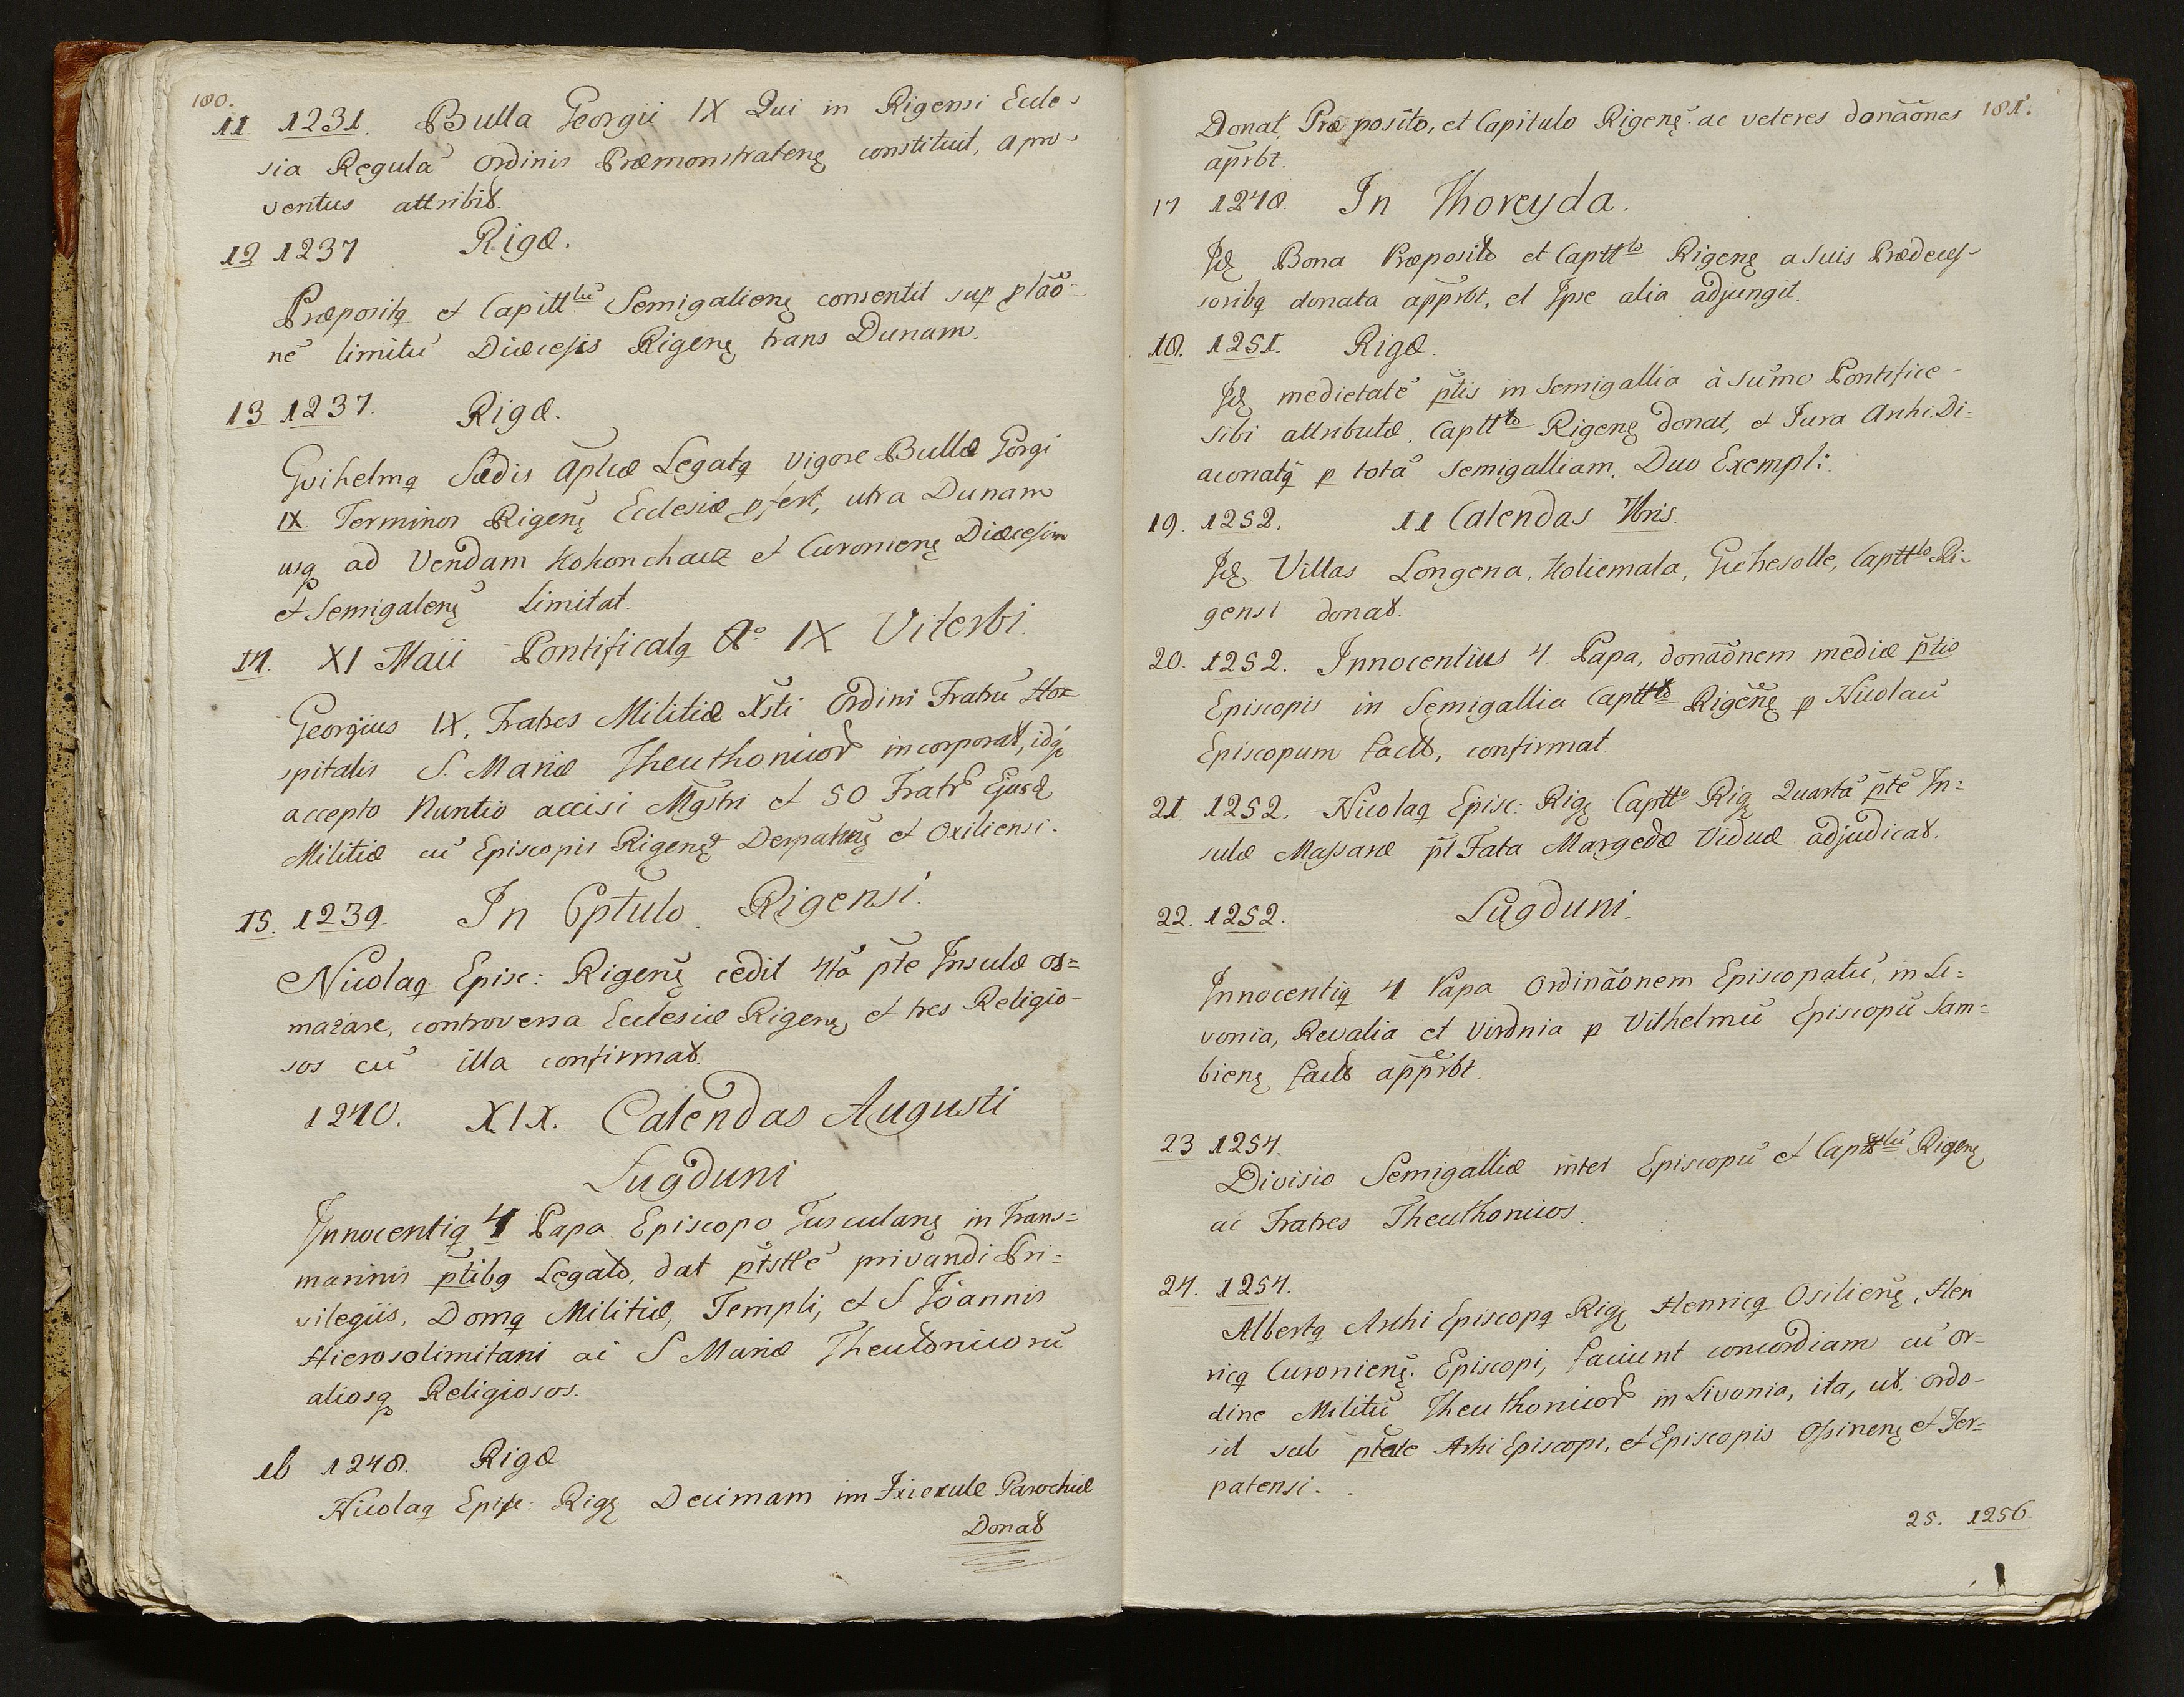 180.
11. 1231. Bulla Georgii IX Qui in Rigensi Eccle-
sia Regulā Ordinis Præmonstratenę constituit, a pro-
ventus attribit.
12 1237 Rigæ.
Præpositq et Capittlū Semigalienę consentit sup plāō-
nē limitū Diæcesis Rigenę trans Dunam.
13 1237. Rigæ.
Gvihelmq Sædis Aplicæ Legatq vigore Bullæ Gorgi
IX Terminos Rigenę Ecclesiæ pfert, utra Dunam
usq ad Vendam Kokonchauz et Curonienę Diæcesim
et Semigalenę Limitat.
14. XI Maii Pontificatq Aº IX Viterbi.
Georgius IX. Fratres Militiæ Xsti Ordini Fratrū Hox
spitalis S. Mariæ Theuthonicor incorporat, idq
accepto Nuntio accisi Mgstri et 50 Fratr Ejusd
Militiæ cū Episcopis Rigenę Derpatenę et Oxiliensi.
15. 1239. In Cptulo Rigensi.
Nicolaq Episc: Rigenę cedit 4tā pte Insulæ os=
maziare, controversa Ecclesiæ Rigenę, et tres Religio-
sos cū illa confirmat.
1240. XIX. Calendas Augusti
Lugduni
Innocentiq 4 Papa Episcopo Tusculanę in trans=
marinis ptibq Legato, dat ptsttē privandi Pri=
vilegiis, Domq Militiæ, Templi, et S Joannis
Hierosolimitani ac S Mariæ Theutonicorū
aliosq Religiosos.
16 1248. Rigæ
Nicolaq Episc: Rigę Decimam im Ixiexule Parochiæ
Donat
181.
Donat Præposito, et Capitulo Rigenę ac veteres donāōnes
aprbt.
17 1248. In Thoreyda.
Id Bona Præposito et Capttlo Rigenę a suis Prædeces-
soribq donata apprbt, et Ipse alia adjungit.
18. 1251. Rigæ.
Id medietatē ptis in Semigallia à sumo Pontifice-
sibi attributæ, Capttlo Rigenę donat, et Jura Archi Di=
aconatq p totā Semigalliam. Duo Exempl:
19. 1252. 11 Calendas Xbris.
Id Villas Longena, Holiemala, Gichesolle, Capttlo Ri-
gensi donat.
20. 1252. Innocentius 4. Papa, donāōnem mediæ ptis
Episcopis in Semigallia Capttlo Rigenę p Nicolaū
Episcopum factō, confirmat.
21. 1252. Nicolaq Episc: Rigę Captto Rigę Quartā ptē In=
sulæ Massanæ pt Fata Margedæ Viduæ adjudicat.
22. 1252. Lugduni.
Innocentiq 4 Papa Ordināōnem Episcopatū, in Li=
vonia, Revalia et Virónia p Vilhelmū Episcopū Sam=
bienę factō apprbt.
23 1254.
Divisio Semigalliæ inter Episcopū et Capttlū Rigenę
ac Fratres Theuthonicos.
24. 1254.
Albertq Archi Episcopq Rigę Henricq Osilienę, Hen
ricq Curonienę. Episcopi, faciunt concordiam cū or=
dine Militū Theuthonicor in Livonia, ita, ut ordo-
sit sub ptate Arhi Episcopi, et Episcopis Ossinenę et Ter=
patensi.
25. 1256.